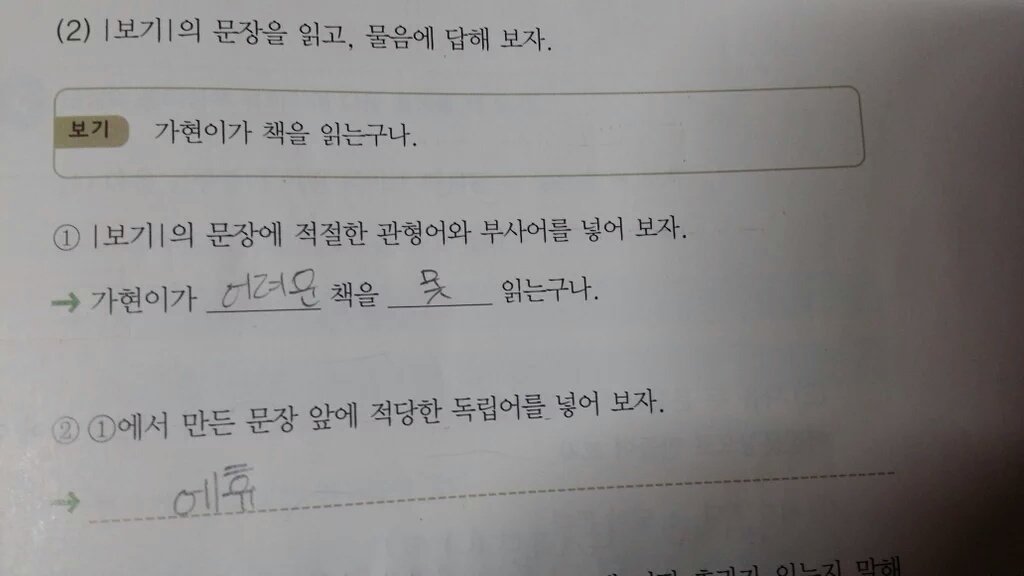 (2) |보기|의 문장을 읽고, 물음에 답해 보자.
보기 가현이가 책을 읽는구나.
① |보기|의 문장에 적절한 관형어와 부사어를 넣어 보자.
→ 가현이가 어려운 책을 못 읽는구나.
② ①에서 만든 문장 앞에 적당한 독립어를 넣어 보자.
→ 에휴
말해